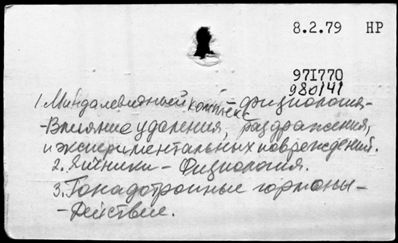 8.2.79 НР
971770
980141
1. Миндалевидный комплекс - физиология -
- Влияние удаления, раздражения,
и экспериментальных повреждений.
2. Яичники - Физиология.
3. Гонадотропные гормоны -
- Действие.